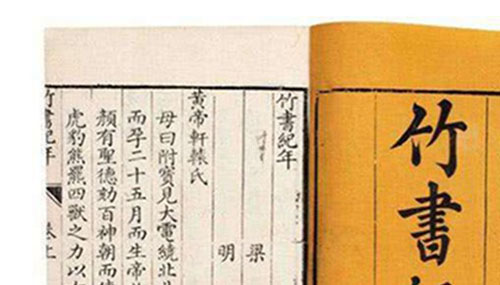 竹書
竹書紀年
梁
明
黃帝軒轅氏
母曰附寶見大電繞北
而孕二十五月而生帝
顏有聖德劾百神朝而
虎豹熊羆四獸之力以
竹書紀年 卷上